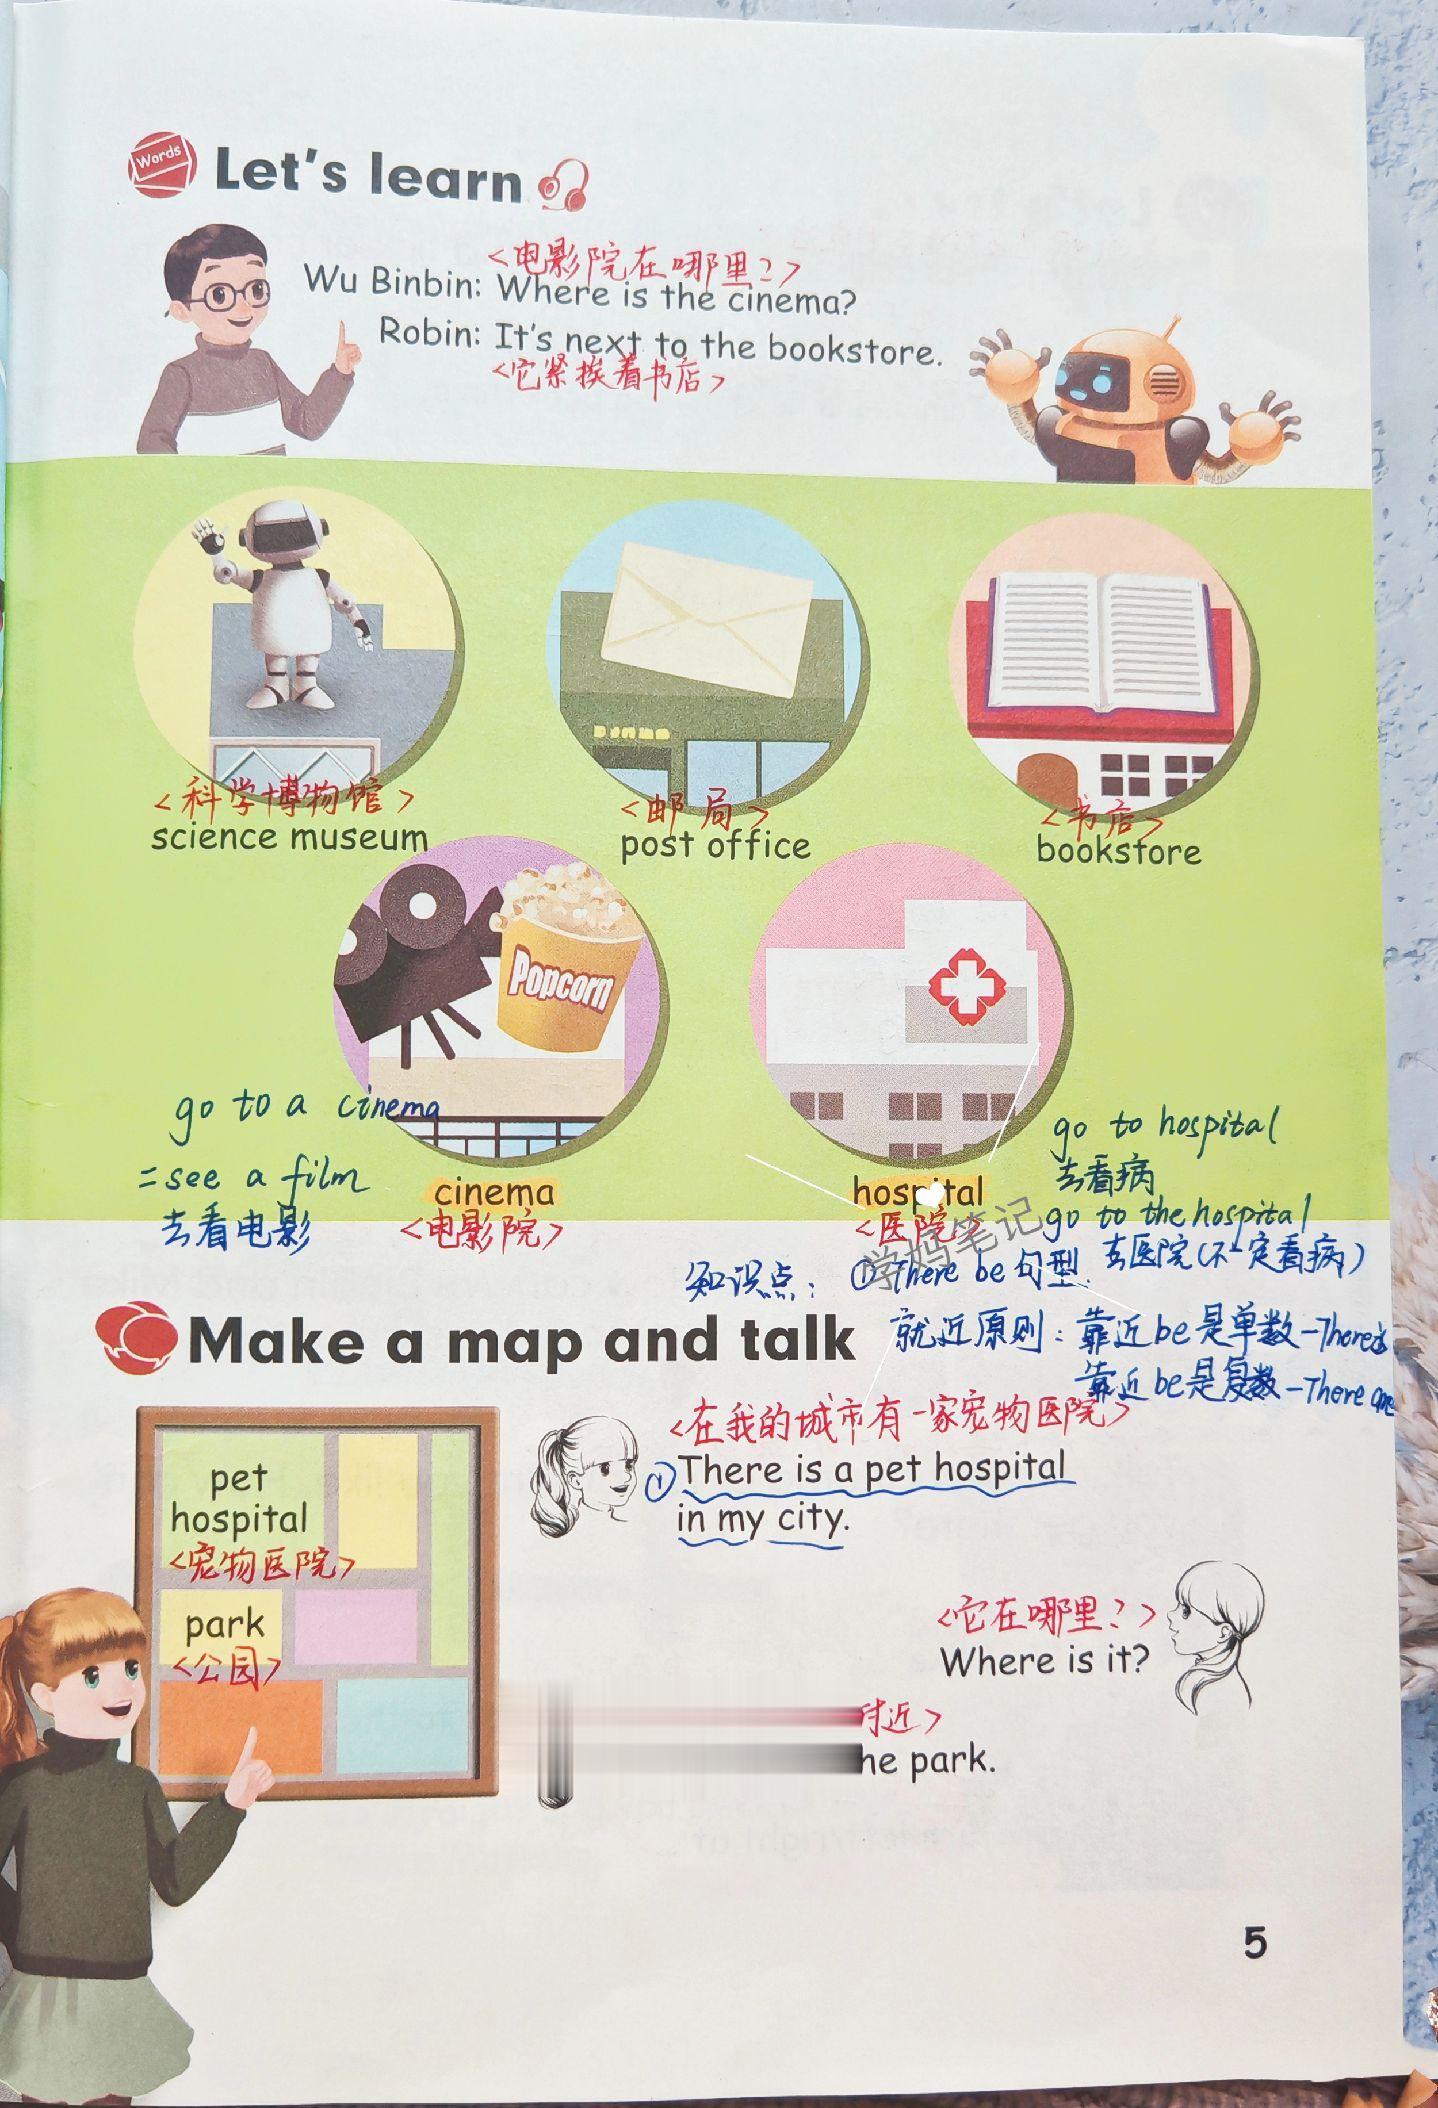 Words
Let's learn
<电影院在哪里?>
Wu Binbin: Where is the cinema?
Robin: It's next to the bookstore.
<它紧挨着书店>
<科学博物馆>
science museum
<邮局>
post office
<书店>
bookstore
Popcorn
go to a cinema
=see a film
去看电影
cinema
<电影院>
hospital
<医院>
go to hospital
去看病
go to the hospital
去医院(不一定看病)
学妈笔记
知识点: ①There be句型.
就近原则: 靠近be是单数-There is
靠近be是复数-There are
Make a map and talk
pet
hospital
<宠物医院>
park
<公园>
<在我的城市有一家宠物医院>
①There is a pet hospital
in my city.
<它在哪里?>
Where is it?
附近>
he park.
5